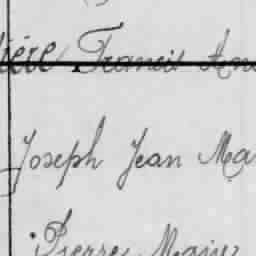 ière Francis An
Joseph Jean Ma
Pierre Marie